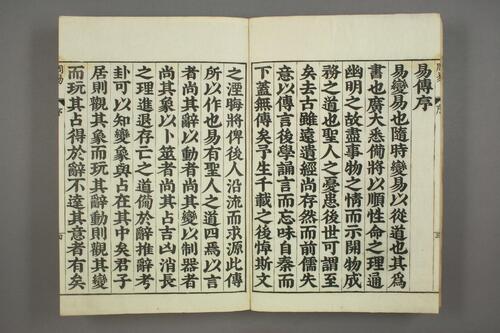 易傳序
易變易也隨時變易以從道也其爲
書也廣大悉備將以順性命之理通
幽明之故盡事物之情而示開物成
務之道也聖人之憂患後世可謂至
矣去古雖遠遺經尚存然而前儒失
意以傳言後學誦言而忘味自秦而
下蓋無傳矣予生千載之後悼斯文
之湮晦將俾後人沿流而求源此傳
所以作也易有聖人之道四焉以言
者尚其辭以動者尚其變以制器者
尚其象以卜筮者尚其占吉凶消長
之理進退存亡之道備於辭推辭考
卦可以知變象與占在其中矣君子
居則觀其象而玩其辭動則觀其變
而玩其占得於辭不達其意者有矣
周易
序